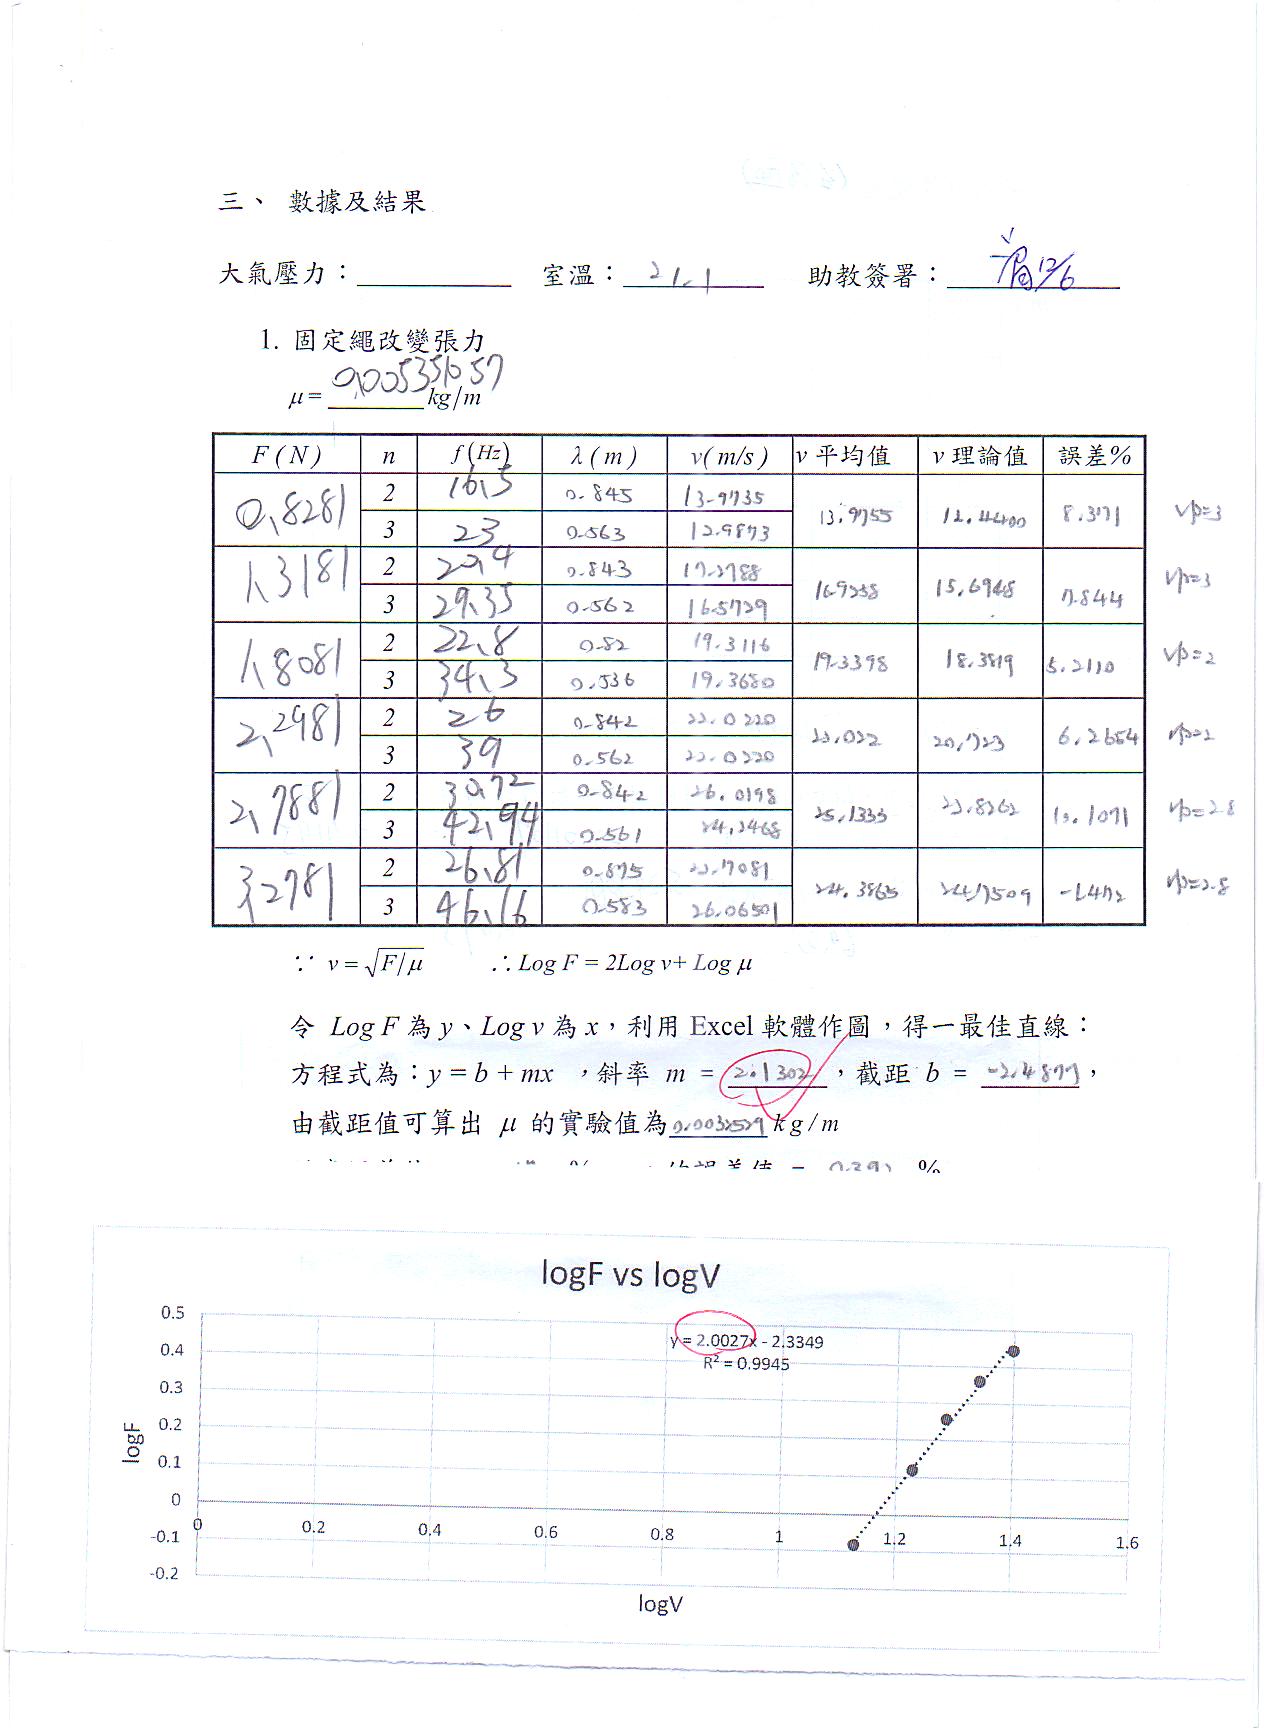 三、 數據及結果
大氣壓力： 室溫：21.1 助教簽署： 12/6
1. 固定繩改變張力
μ = 0.00535657 kg/m
F (N) n f (Hz) λ (m) v (m/s) v 平均值 v 理論值 誤差%
0.8281 2 16.5 0.845 13.9735 13.9755 12.4400 8.371 Vp=3
3 23 0.563 12.9873
1.3181 2 20.4 0.843 17.2788 16.9258 15.6948 7.844 Vp=3
3 29.35 0.562 16.5729
1.8081 2 22.8 0.82 19.3116 19.3398 18.3819 5.2110 Vp=2
3 34.3 0.536 19.3680
2.2981 2 26 0.842 22.0220 22.022 20.723 6.2654 Vp=2
3 39 0.562 22.0220
2.7881 2 30.72 0.842 26.0198 25.1333 22.8262 10.1071 Vp=2.8
3 42.94 0.561 24.2468
3.2781 2 26.81 0.875 22.7081 24.3865 24.7509 -1.472 Vp=2.8
3 46.16 0.583 26.06501
∵ v = √F/μ ∴ Log F = 2Log v+ Log μ
令 Log F 為 y、Log v 為 x，利用 Excel 軟體作圖，得一最佳直線：
方程式為：y = b + mx ，斜率 m = 2.1302 ，截距 b = -2.4877 ，
由截距值可算出 μ 的實驗值為 0.0032529 kg/m
logF vs logV
y = 2.0027x - 2.3349
R² = 0.9945
0.5
0.4
0.3
0.2
0.1
0
-0.1
-0.2
logF
0 0.2 0.4 0.6 0.8 1 1.2 1.4 1.6
logV